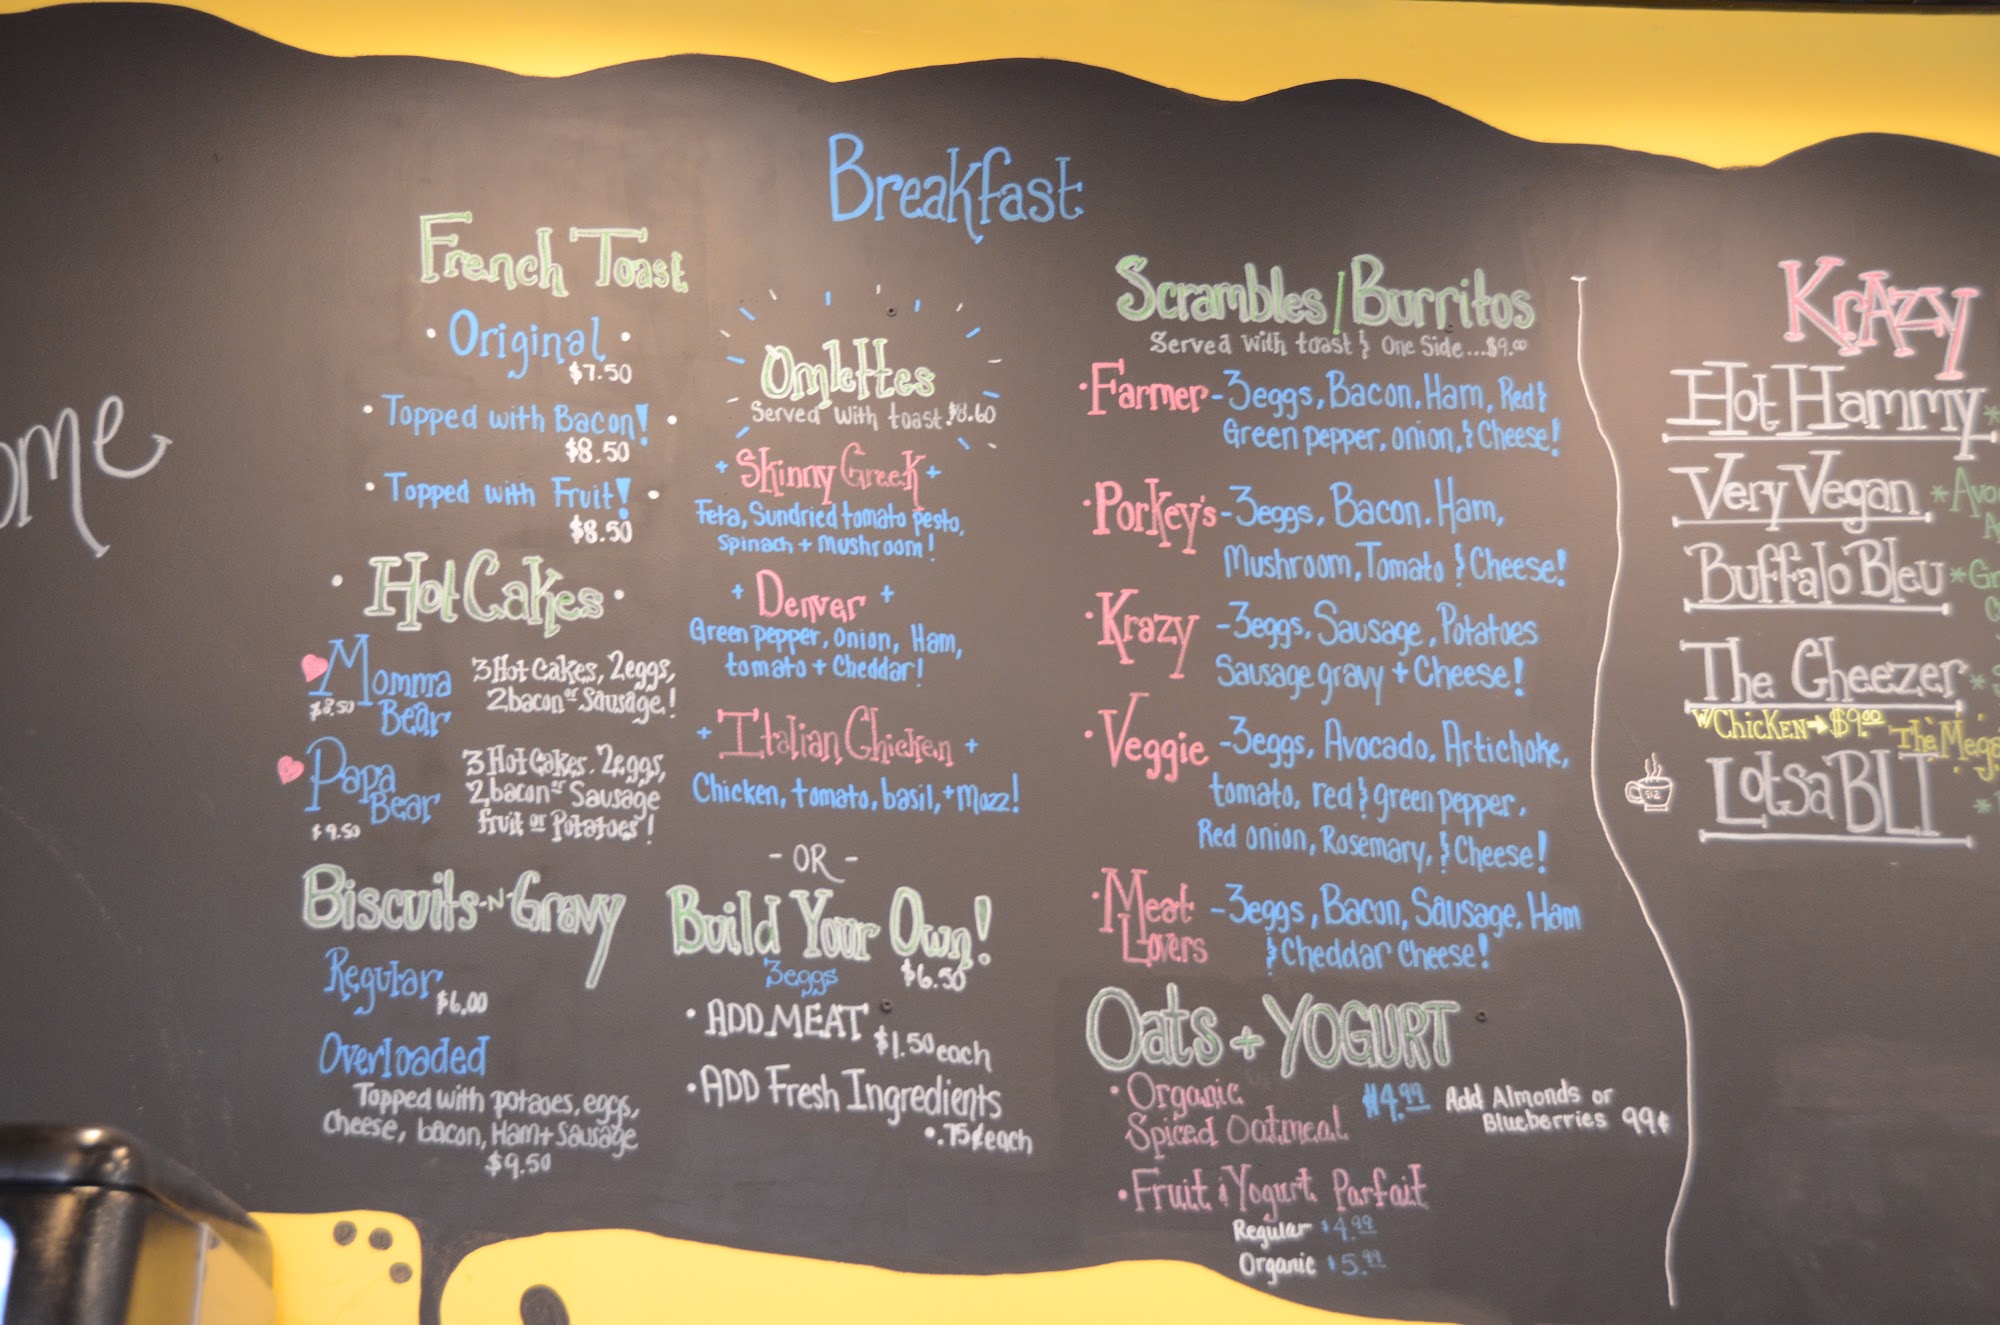 Breakfast
French Toast
• Original •
$7.50
• Topped with Bacon! •
$8.50
• Topped with Fruit! •
$8.50
• Hot Cakes •
Momma Bear
$8.50
3 Hot Cakes, 2 eggs,
2 bacon or Sausage!
Papa Bear
$9.50
3 Hot Cakes. 2 eggs,
2 bacon or Sausage
fruit or Potatoes!
Biscuits-N-Gravy
Regular
$6.00
Overloaded
Topped with potatoes, eggs,
Cheese, bacon, Ham + Sausage
$9.50
Omlettes
Served With toast $8.60
+ Skinny Greek +
Feta, Sundried tomato pesto,
Spinach + mushroom!
+ Denver +
Green pepper, onion, Ham,
tomato + Cheddar!
+ Italian Chicken +
Chicken, tomato, basil, + Mozz!
- OR -
Build Your Own!
3 eggs $6.50
• ADD MEAT
$1.50 each
• ADD Fresh Ingredients
• .75¢ each
Scrambles/Burritos
Served With toast & One Side....$9.00
• Farmer - 3 eggs, Bacon, Ham, Red &
Green pepper, onion, & Cheese!
• Porkey's - 3 eggs, Bacon. Ham,
Mushroom, Tomato & Cheese!
• Krazy - 3 eggs, Sausage, Potatoes
Sausage gravy + Cheese!
• Veggie - 3 eggs, Avocado, Artichoke,
tomato, red & green pepper,
Red onion, Rosemary, & Cheese!
• Meat Lovers - 3 eggs, Bacon, Sausage, Ham
& Cheddar Cheese!
Oats + YOGURT
• Organic
Spiced Oatmeal
$4.99
Add Almonds or
Blueberries 99¢
• Fruit & Yogurt Parfait
Regular $4.99
Organic $5.99
KrAZY
Hot Hammy *
Very Vegan *
Buffalo Bleu *
The Cheezer *
W/Chicken → $9.00 The
Lotsa BLT *